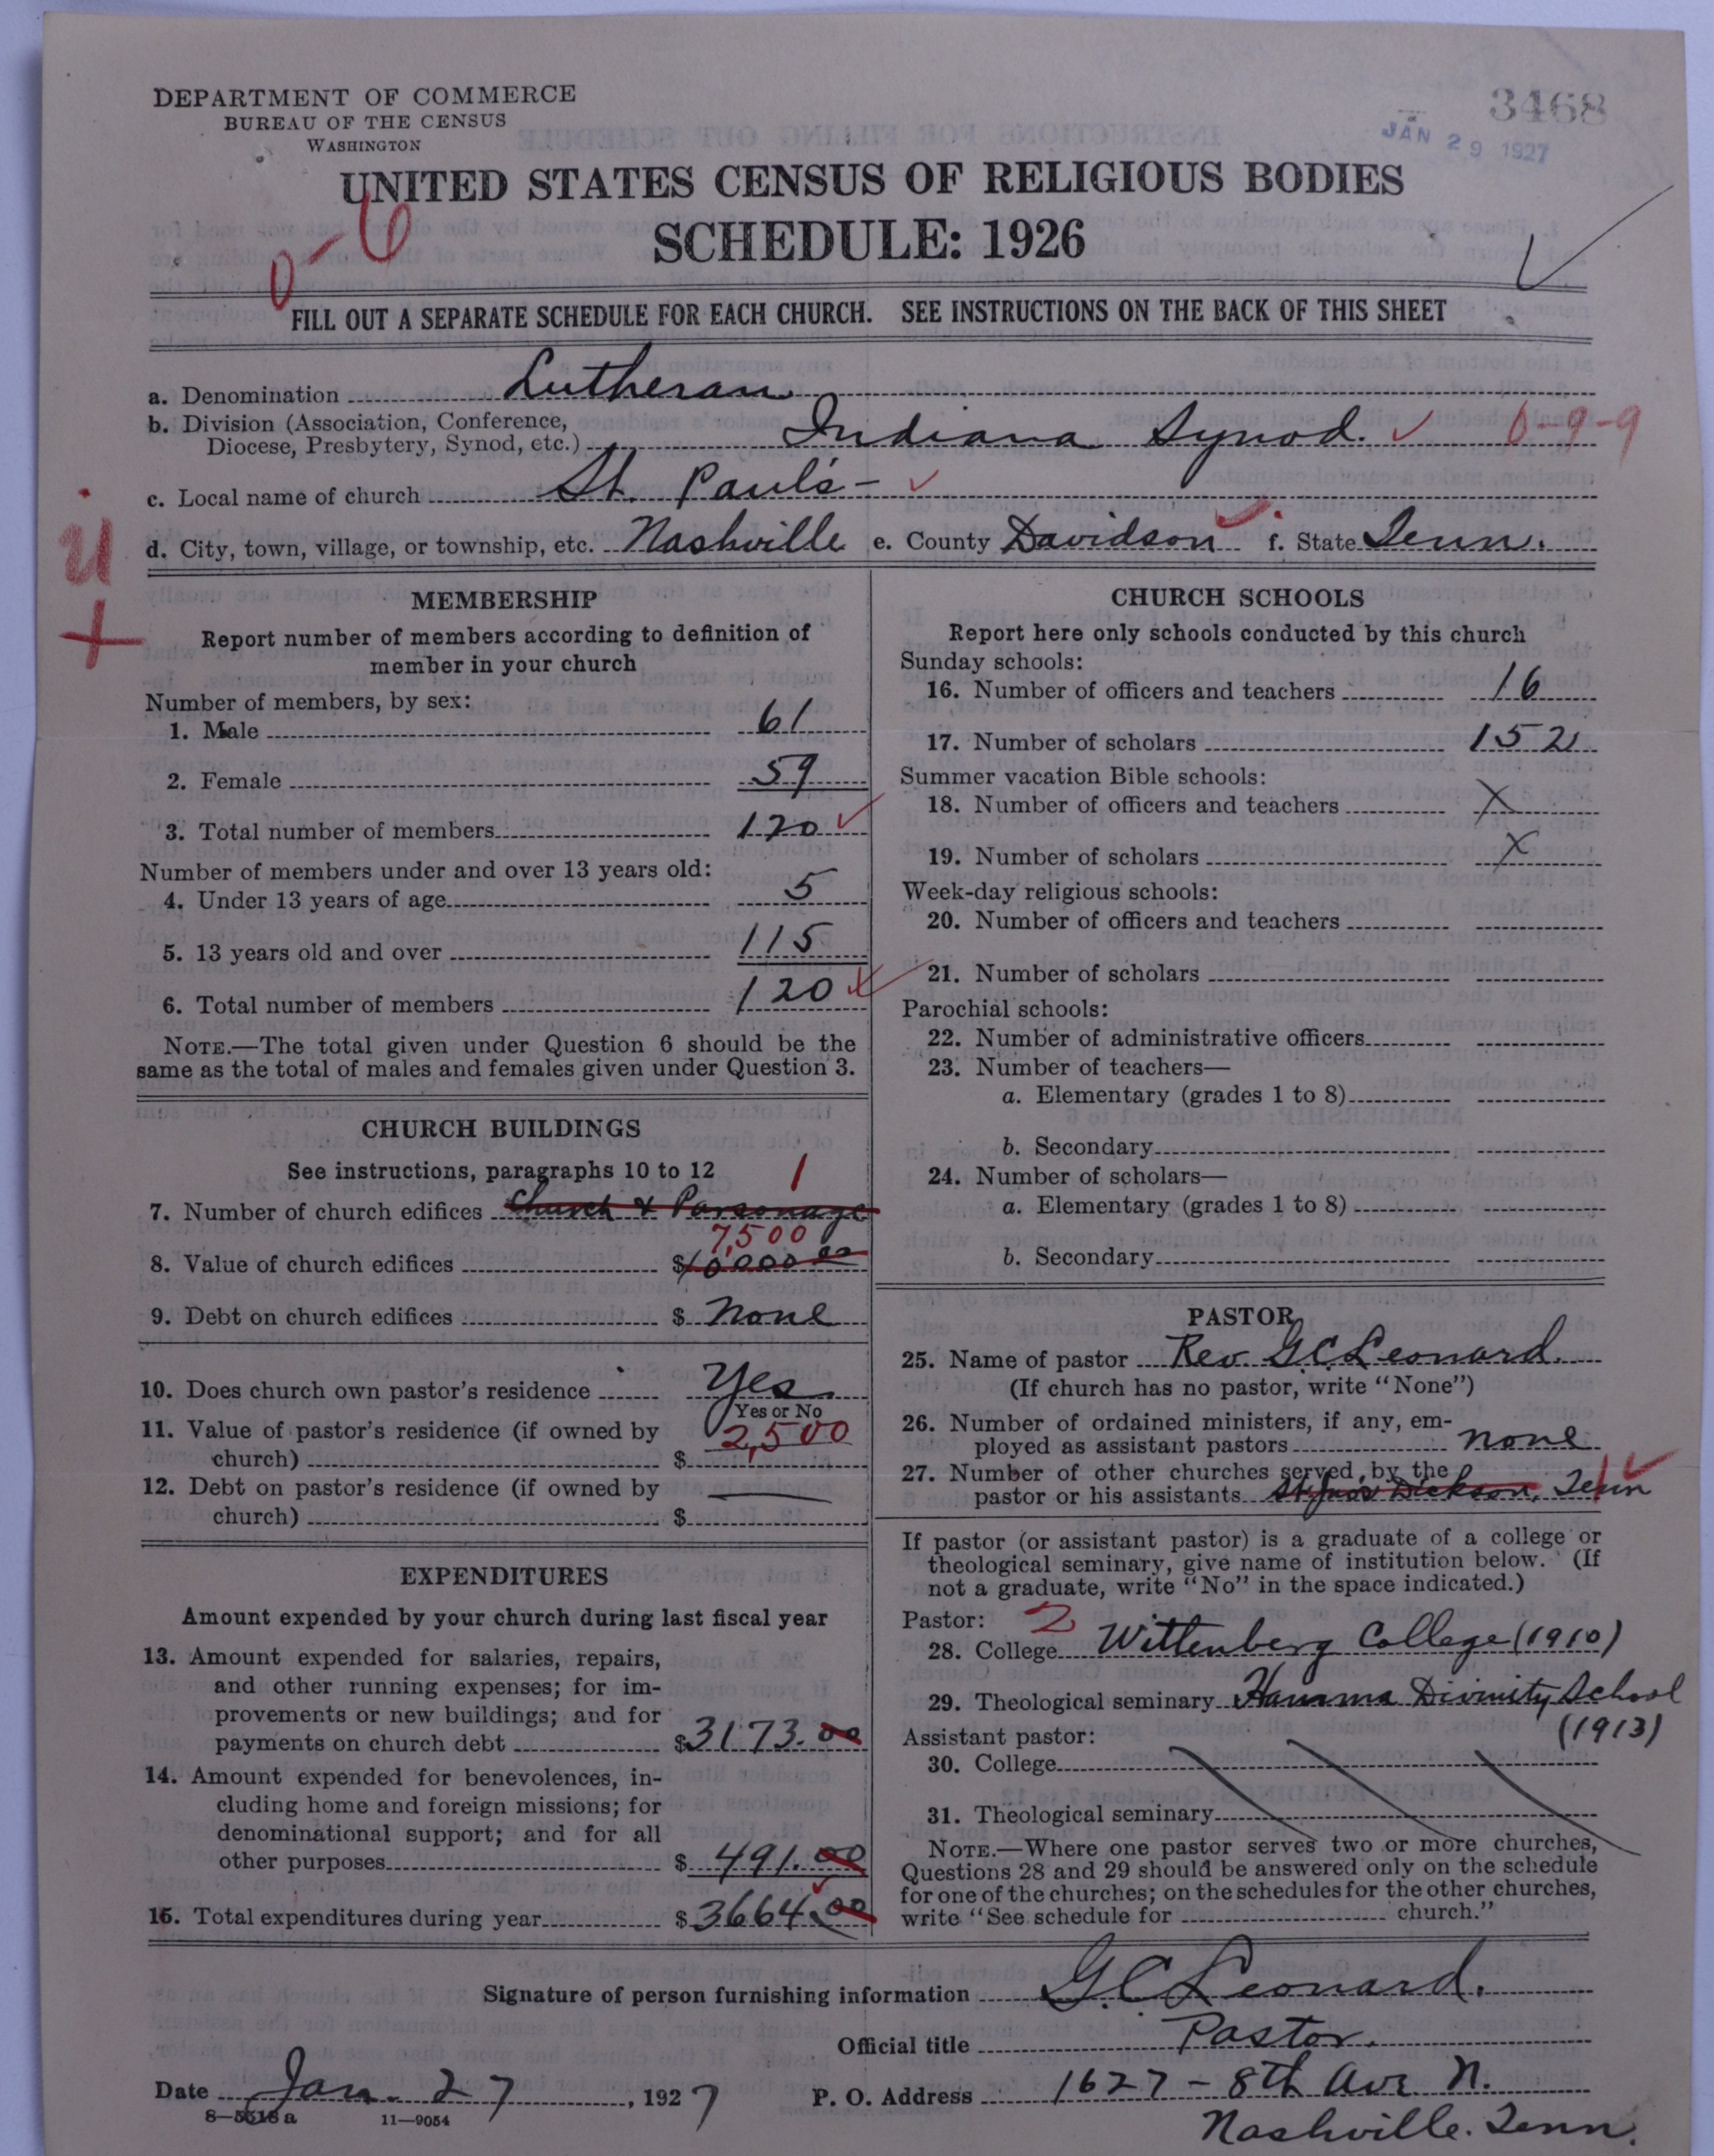 DEPARTMENT OF COMMERCE
BUREAU OF THE CENSUS
WASHINGTON
3468
JAN 29 1927
UNITED STATES CENSUS OF RELIGIOUS BODIES
SCHEDULE: 1926
0-6
FILL OUT A SEPARATE SCHEDULE FOR EACH CHURCH. SEE INSTRUCTIONS ON THE BACK OF THIS SHEET
a. Denomination Lutheran
b. Division (Association, Conference,
Diocese, Presbytery, Synod, etc.) Indiana Synod. 6-9-9
c. Local name of church St. Paul's-
d. City, town, village, or township, etc. Nashville e. County Davidson f. State Tenn.
MEMBERSHIP
Report number of members according to definition of
member in your church
Number of members, by sex:
1. Male 61
2. Female 59
3. Total number of members 120
Number of members under and over 13 years old:
4. Under 13 years of age 5
5. 13 years old and over 115
6. Total number of members 120
NOTE.—The total given under Question 6 should be the
same as the total of males and females given under Question 3.
CHURCH BUILDINGS
See instructions, paragraphs 10 to 12
1
7. Number of church edifices Church & Parsonage
7,500
8. Value of church edifices $10000 00
9. Debt on church edifices $ None
10. Does church own pastor's residence Yes
Yes or No
11. Value of pastor's residence (if owned by
church) $ 2,500
12. Debt on pastor's residence (if owned by
church) $
EXPENDITURES
Amount expended by your church during last fiscal year
13. Amount expended for salaries, repairs,
and other running expenses; for im-
provements or new buildings; and for
payments on church debt $3173.00
14. Amount expended for benevolences, in-
cluding home and foreign missions; for
denominational support; and for all
other purposes $ 491.00
15. Total expenditures during year $3664.00
CHURCH SCHOOLS
Report here only schools conducted by this church
Sunday schools:
16. Number of officers and teachers 16
17. Number of scholars 152
Summer vacation Bible schools:
18. Number of officers and teachers X
19. Number of scholars X
Week-day religious schools:
20. Number of officers and teachers
21. Number of scholars
Parochial schools:
22. Number of administrative officers
23. Number of teachers—
a. Elementary (grades 1 to 8)
b. Secondary
24. Number of scholars—
a. Elementary (grades 1 to 8)
b. Secondary
PASTOR
25. Name of pastor Rev G.C Leonard
(If church has no pastor, write "None")
26. Number of ordained ministers, if any, em-
ployed as assistant pastors none
27. Number of other churches served by the
pastor or his assistants Dickson, Tenn 1
If pastor (or assistant pastor) is a graduate of a college or
theological seminary, give name of institution below. (If
not a graduate, write "No" in the space indicated.)
Pastor: 2
28. College Wittenberg College (1910)
29. Theological seminary Hamma Divinity School
(1913)
Assistant pastor:
30. College
31. Theological seminary
NOTE.—Where one pastor serves two or more churches,
Questions 28 and 29 should be answered only on the schedule
for one of the churches; on the schedules for the other churches,
write "See schedule for church."
Signature of person furnishing information G.C Leonard.
Official title Pastor.
Date Jan. 27, 1927 P. O. Address 1627 - 8th Ave N.
8-5518a 11-9054
Nashville. Tenn.